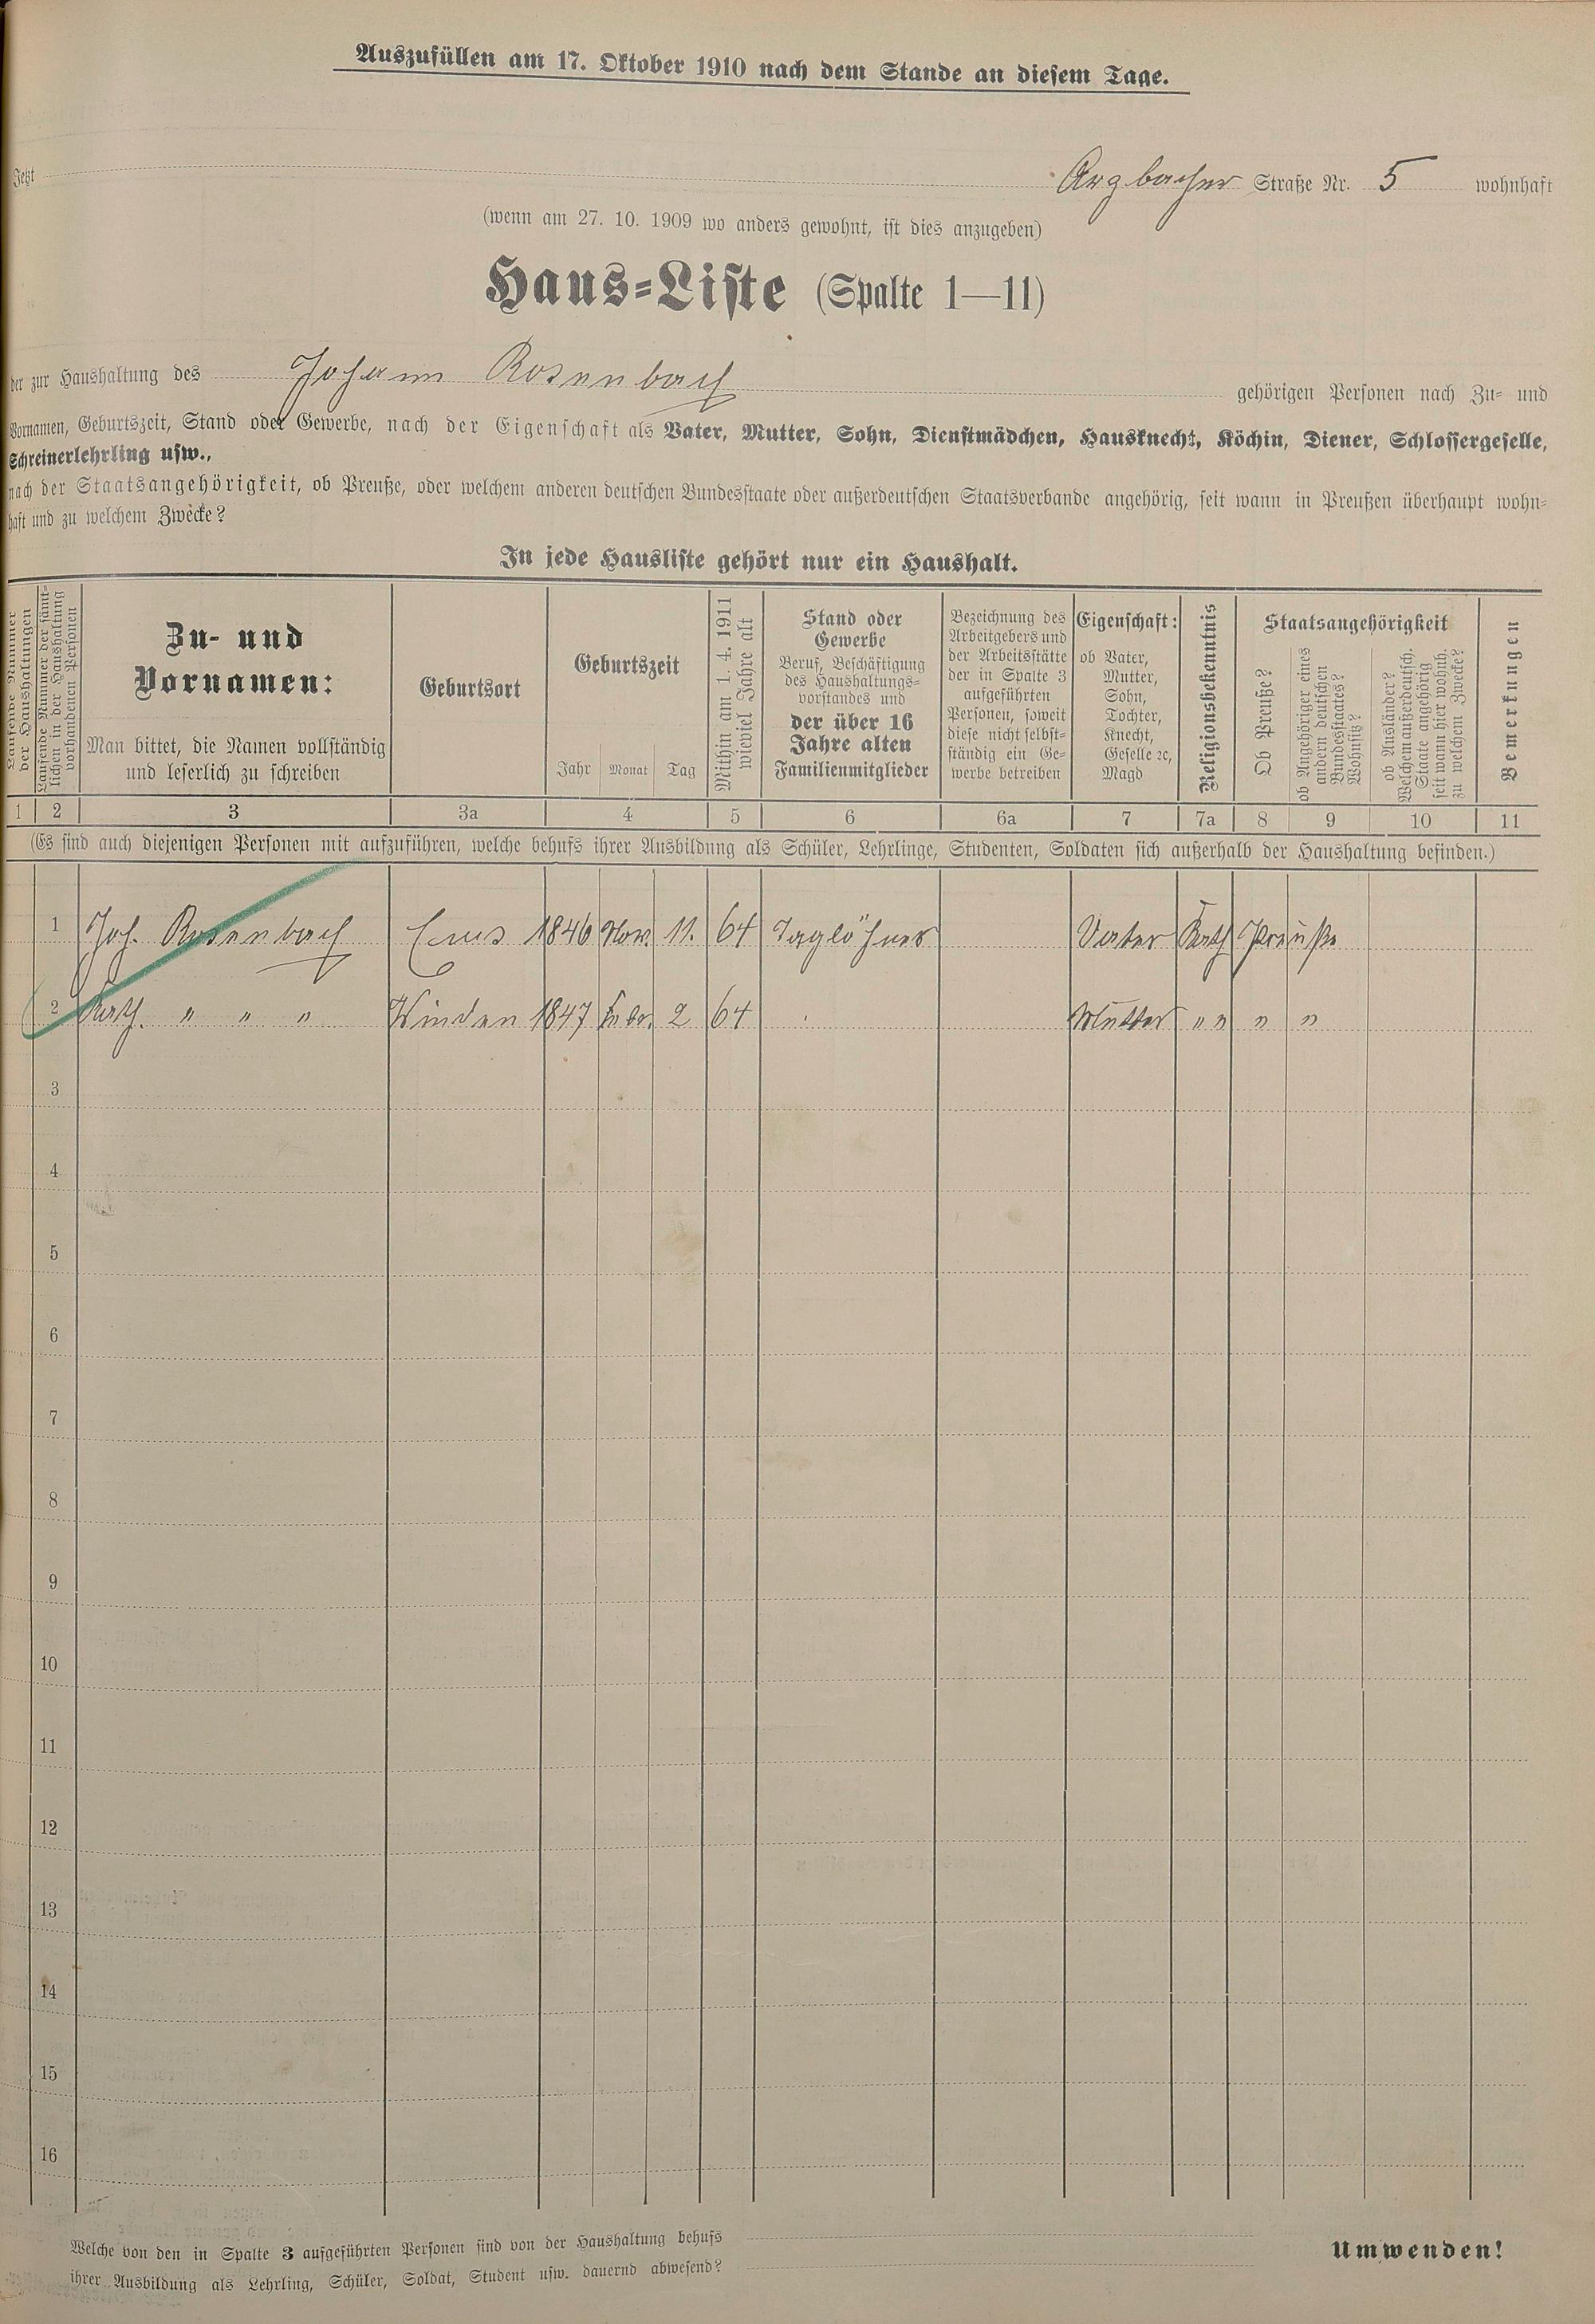 Auszufüllen am 17. Oktober 1910 nach dem Stande an diesem Tage.
Jetzt Arzbacher Straße Nr. 5 wohnhaft
(wenn am 27. 10. 1909 wo anders gewohnt, ist dies anzugeben)
Haus=Liste (Spalte 1—11)
der zur Haushaltung des Johann Rosenbach gehörigen Personen nach Zu= und
Vornamen, Geburtszeit, Stand oder Gewerbe, nach der Eigenschaft als Vater, Mutter, Sohn, Dienstmädchen, Hausknecht, Köchin, Diener, Schlossergeselle,
Schreinerlehrling usw.,
nach der Staatsangehörigkeit, ob Preuße, oder welchem anderen deutschen Bundesstaate oder außerdeutschen Staatsverbande angehörig, seit wann in Preußen überhaupt wohn=
haft und zu welchem Zwecke?
In jede Hausliste gehört nur ein Haushalt.
Laufende Nummer
der Haushaltungen
Laufende Nummer der sämt=
lichen in der Haushaltung
vorhandenen Personen
Zu- und
Vornamen:
Man bittet, die Namen vollständig
und leserlich zu schreiben
Geburtsort
Geburtszeit
Jahr Monat Tag
Mithin am 1. 4. 1911
wieviel Jahre alt
Stand oder
Gewerbe
Beruf, Beschäftigung
des Haushaltungs=
vorstandes und
der über 16
Jahre alten
Familienmitglieder
Bezeichnung des
Arbeitgebers und
der Arbeitsstätte
der in Spalte 3
aufgeführten
Personen, soweit
diese nicht selbst=
ständig ein Ge=
werbe betreiben
Eigenschaft:
ob Vater,
Mutter,
Sohn,
Tochter,
Knecht,
Geselle ꝛc,
Magd
Religionsbekenntnis
Staatsangehörigkeit
Ob Preuße?
ob Angehöriger eines
andern deutschen
Bundesstaates?
Wohnsitz?
ob Ausländer?
Welchem außerdeutsch.
Staate angehörig
seit wann hier wohnh.
zu welchem Zwecke?
Bemerkungen
1 2 3 3a 4 5 6 6a 7 7a 8 9 10 11
(Es sind auch diejenigen Personen mit aufzuführen, welche behufs ihrer Ausbildung als Schüler, Lehrlinge, Studenten, Soldaten sich außerhalb der Haushaltung befinden.)
1 Joh. Rosenbach Ems 1846 Nov. 11. 64 Taglöhner Vater Kath Preuße
2 Kath. " " " Winden 1847 Febr. 2 64 Mutter " " " "
3
4
5
6
7
8
9
10
11
12
13
14
15
16
Welche von den in Spalte 3 aufgeführten Personen sind von der Haushaltung behufs
ihrer Ausbildung als Lehrling, Schüler, Soldat, Student usw. dauernd abwesend?
Umwenden!